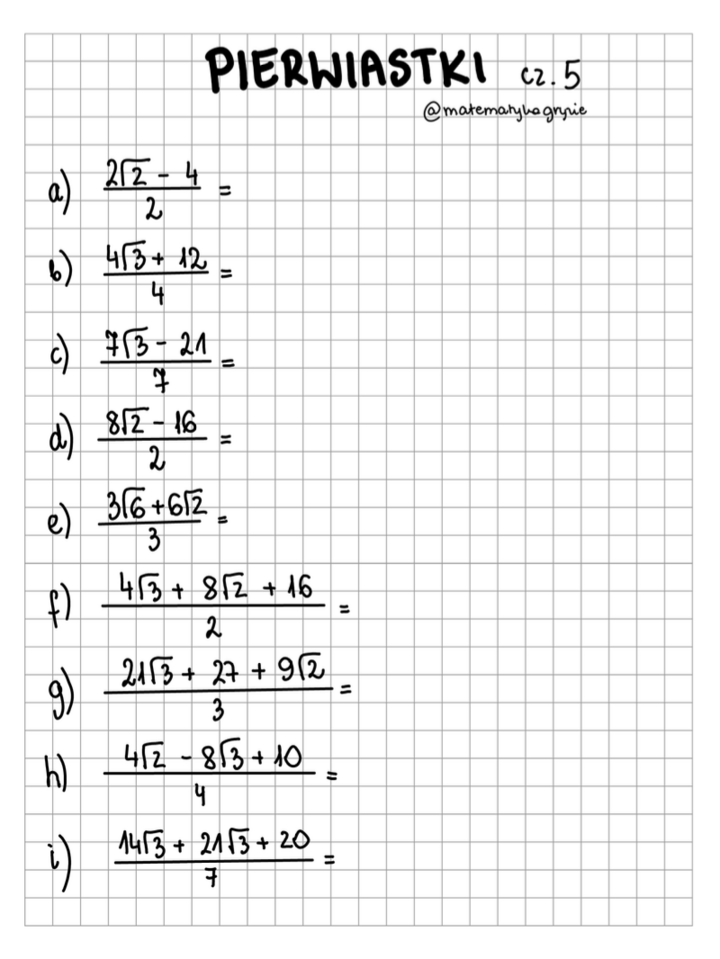 PIERWIASTKI cz.5
@matematykagryzie
a) (2√2 - 4)/2 =
b) (4√3 + 12)/4 =
c) (7√3 - 21)/7 =
d) (8√2 - 16)/2 =
e) (3√6 + 6√2)/3 =
f) (4√3 + 8√2 + 16)/2 =
g) (21√3 + 27 + 9√2)/3 =
h) (4√2 - 8√3 + 10)/4 =
i) (14√3 + 21√3 + 20)/7 =